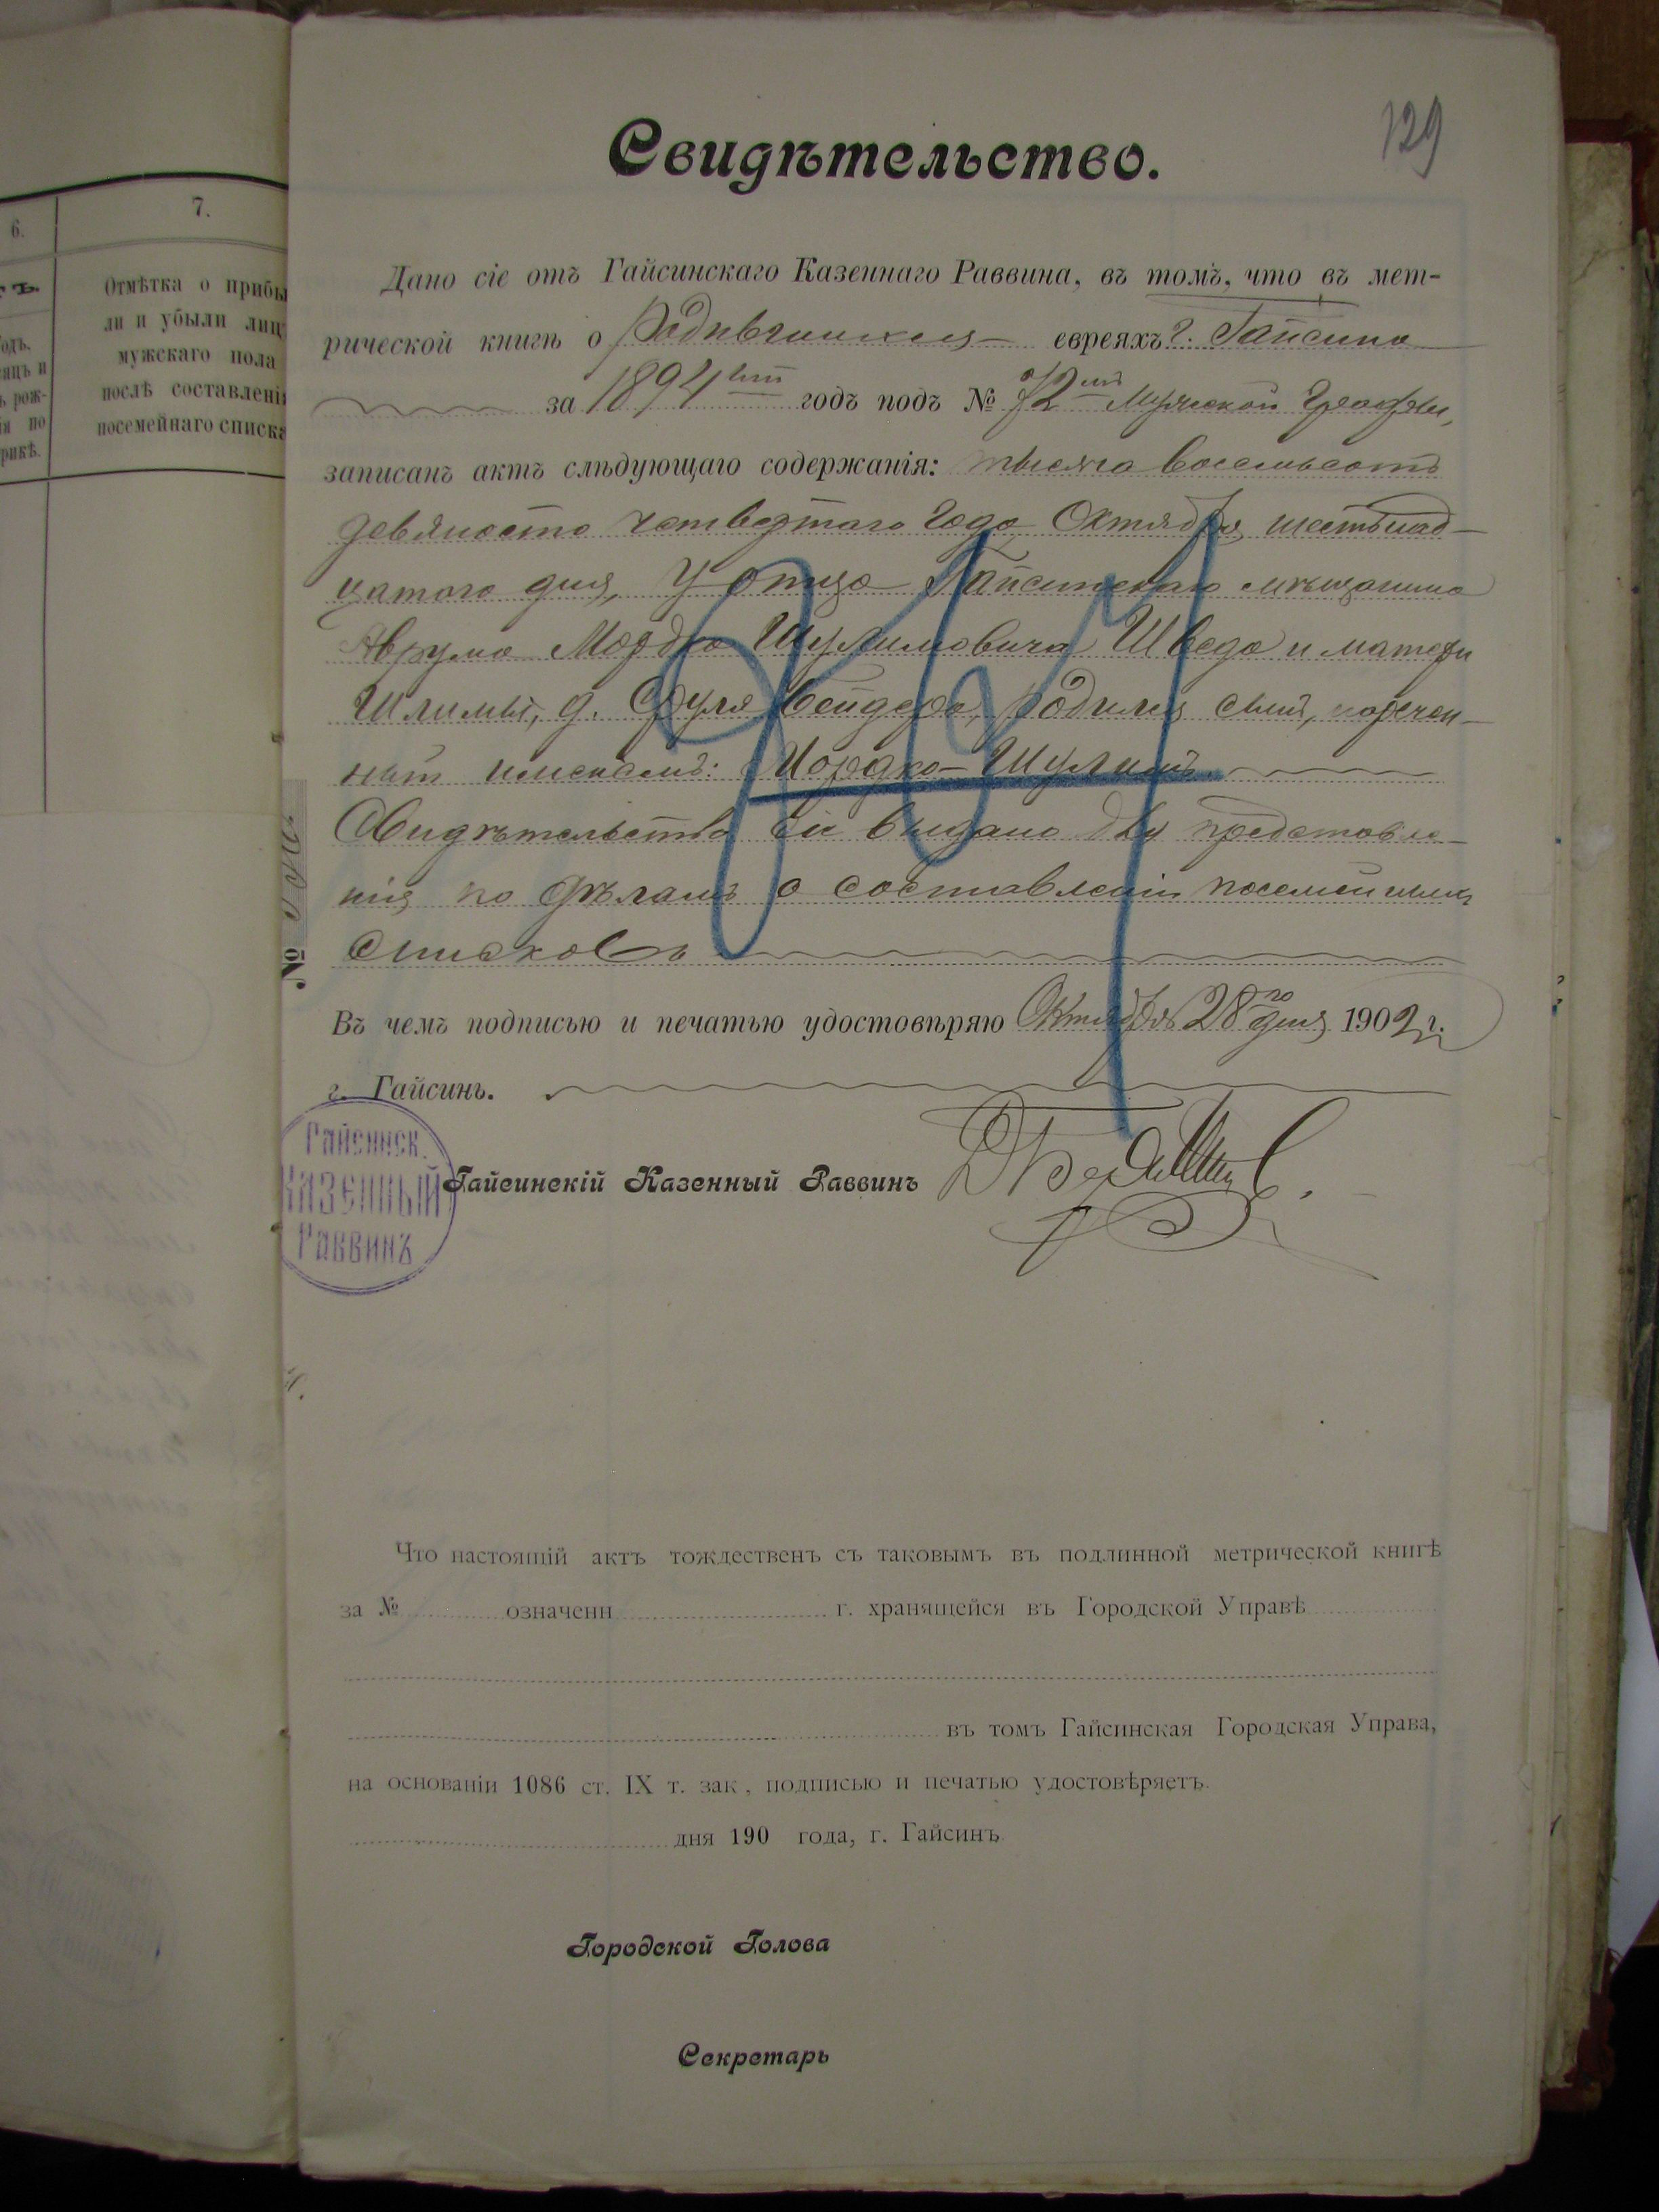 6.
7.
Отмѣтка о прибы
ли и убыли лиц
мужскаго пола
послѣ составлені
посемейнаго списка
129
Свидѣтельство.
Дано сіе отъ Гайсинскаго Казеннаго Раввина, въ томъ, что въ мет-
рической книгѣ о Родившихся евреяхъ г. Гайсина
за 1894 годъ подъ № 72 мужской графы,
записанъ актъ слѣдующаго содержанія: тысяча восемьсотъ
девяносто четвертаго года Октября шестьнад-
цатого дня, у отца Гайсинскаго мѣщанина
Аврума Мордко Шулимовича Шведа и матери
Шлимы, д. Сруля родился сынъ, наречен-
ный именемъ: Мордко-Шулимъ
Свидѣтельство сіе выдано для представле-
нія по дѣламъ о составленіи посемейныхъ
списковъ
Въ чемъ подписью и печатью удостовѣряю Октября 28го дня 1902 г.
г. Гайсинъ.
Гайсинск.
Казенный
Раввинъ
Гайсинскій Казенный Раввинъ
Что настоящій актъ тождественъ съ таковымъ въ подлинной метрической книгѣ
за № означенн г. хранящейся въ Городской Управѣ
въ томъ Гайсинская Городская Управа,
на основаніи 1086 ст. IX т. зак, подписью и печатью удостовѣряетъ.
дня 190 года, г. Гайсинъ
Городской Голова
Секретарь